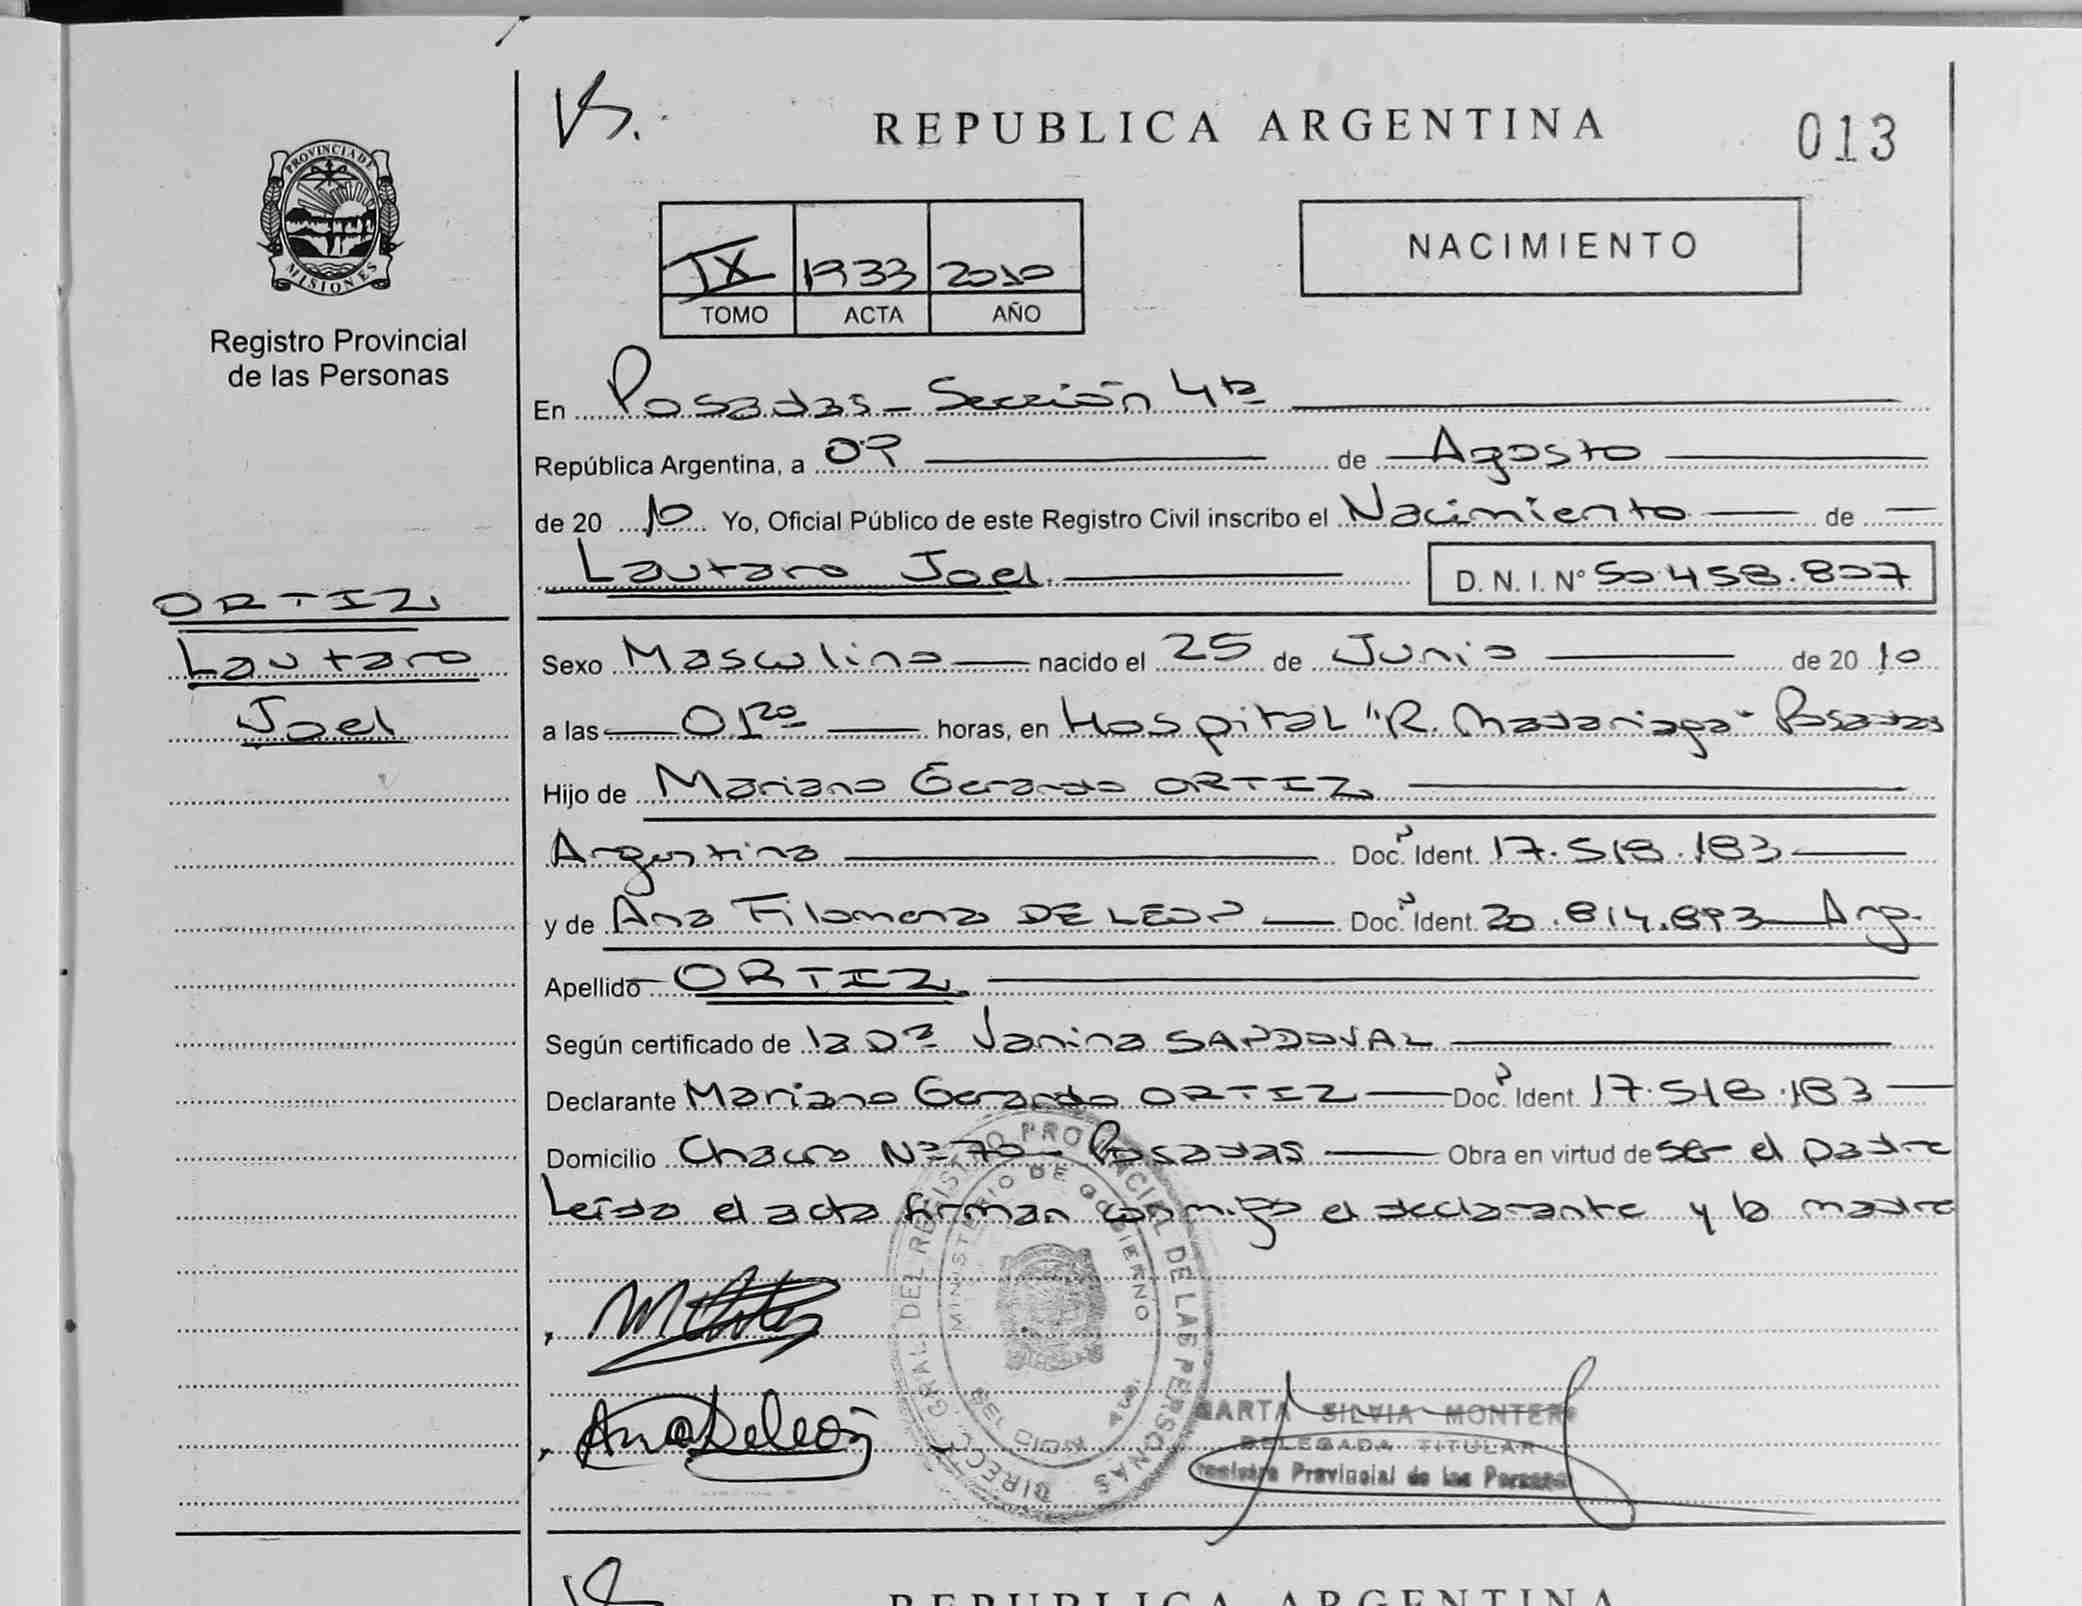 REPUBLICA ARGENTINA
013
PROVINCIA DE
MISIONES
Registro Provincial
de las Personas
IX 1933 2010
TOMO ACTA AÑO
NACIMIENTO
En Posadas - Sección 4ta
República Argentina, a 09 de Agosto
de 20 10 Yo, Oficial Público de este Registro Civil inscribo el Nacimiento de
Lautaro Joel. D. N. I. N° 50.458.807
ORTIZ
Lautaro
Joel
Sexo Masculino nacido el 25 de Junio de 20 10
a las 01 20 horas, en Hospital "R. Madariaga" Posadas
Hijo de Mariano Gerardo ORTIZ
Argentina Doc. Ident. 17.518.183
y de Ana Filomena DE LEON Doc. Ident. 20.814.893 Arg.
Apellido ORTIZ
Según certificado de la Dra Janina SANDOVAL
Declarante Mariano Gerardo ORTIZ Doc. Ident. 17.518.183
Domicilio Chacra Nº 70 - Posadas Obra en virtud de ser el padre
Leída el acta firman conmigo el declarante y la madre
DIRECC. GRAL. DEL REGISTRO PROVINCIAL DE LAS PERSONAS
MINISTERIO DE GOBIERNO
Ana Deleon
MARTA SILVIA MONTERO
DELEGADA TITULAR
Registro Provincial de las Personas
REPUBLICA ARGENTINA